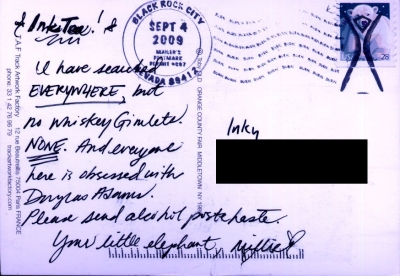 InksTea!
BLACK ROCK CITY
SEPT 4
2009
MAILER'S
POSTMARK
PERMIT #267
NEVADA 89412
28
I have searched
EVERYWHERE, but
no Whiskey Gimlets.
NONE. And everyone
here is obsessed with
Douglas Adams.
Please send alcohol postehaste.
Your little elephant, Millie
Inky
Track Artwork Factory
12 rue Beautreillis 75004 Paris FRANCE
phone: 33 1 42 76 96 79
trackartworkfactory.com
ORANGE COUNTY FAIR MIDDLETOWN, NY